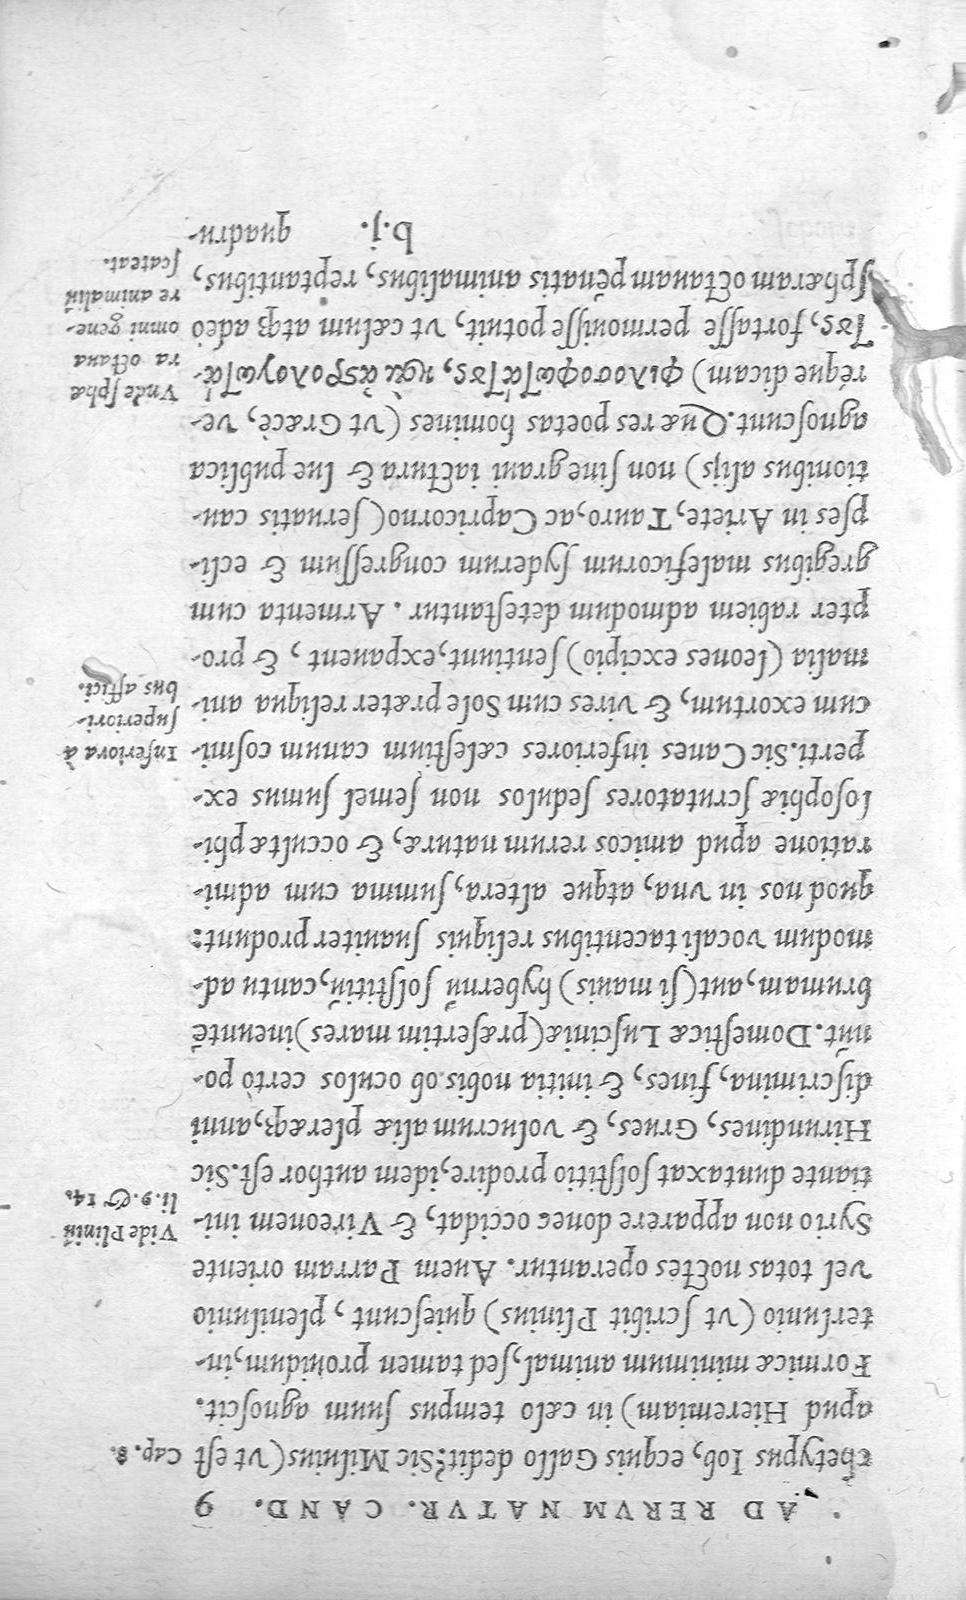 AD RERVM NATVR. CAND. 9
thetypus Iob, ecquis Gallo dedit? Sic Miluius (vt est
Cap. 8.
apud Hieremiam) in cælo tempus suum agnoscit.
Formicæ minimum animal, sed tamen prouidum, in-
terlunio (vt scribit Plinius) quiescunt, plenilunio
vel totas noctes operantur. Auem Parram oriente
Syrio non apparere donec occidat, & Vireonem ini-
Vide Pliniũ
li. 9. & 14.
tiante duntaxat solstitio prodire, idem author est. Sic
Hirundines, Grues, & volucrum aliæ pleræq;, anni
discrimina, fines, & initia nobis ob oculos certò po-
nũt. Domesticæ Lusciniæ (præsertim mares) ineuntẽ
brumam, aut (si mauis) hybernũ solstitiũ, cantu ad-
modum vocali tacentibus reliquis suauiter produnt:
quod nos in vna, atque altera, summa cum admi-
ratione apud amicos rerum naturæ, & occultæ phi-
losophiæ scrutatores sedulos non semel sumus ex-
perti. Sic Canes inferiores cælestium canum cosmi-
Inferiora à
superiori-
bus affici.
cum exortum, & vires cum Sole præter reliqua ani-
malia (leones excipio) sentiunt, expauent, & pro-
pter rabiem admodum detestantur. Armenta cum
gregibus maleficorum syderum congressum & ecli-
pses in Ariete, Tauro, ac Capricorno (seruatis cau-
tionibus alijs) non sine graui iactura & lue publica
agnoscunt. Quæ res poetas homines (vt Græcè, ve-
réque dicam) φιλοσοφωτάτους, καὶ ἀστρολογωτά-
Vnde sphæ
ra octaua
omni gene-
re animaliũ
scateat.
τους, fortasse permouisse potuit, vt cælum atq; adeò
sphæram octauam pẽnatis animalibus, reptantibus,
b.j. quadru-